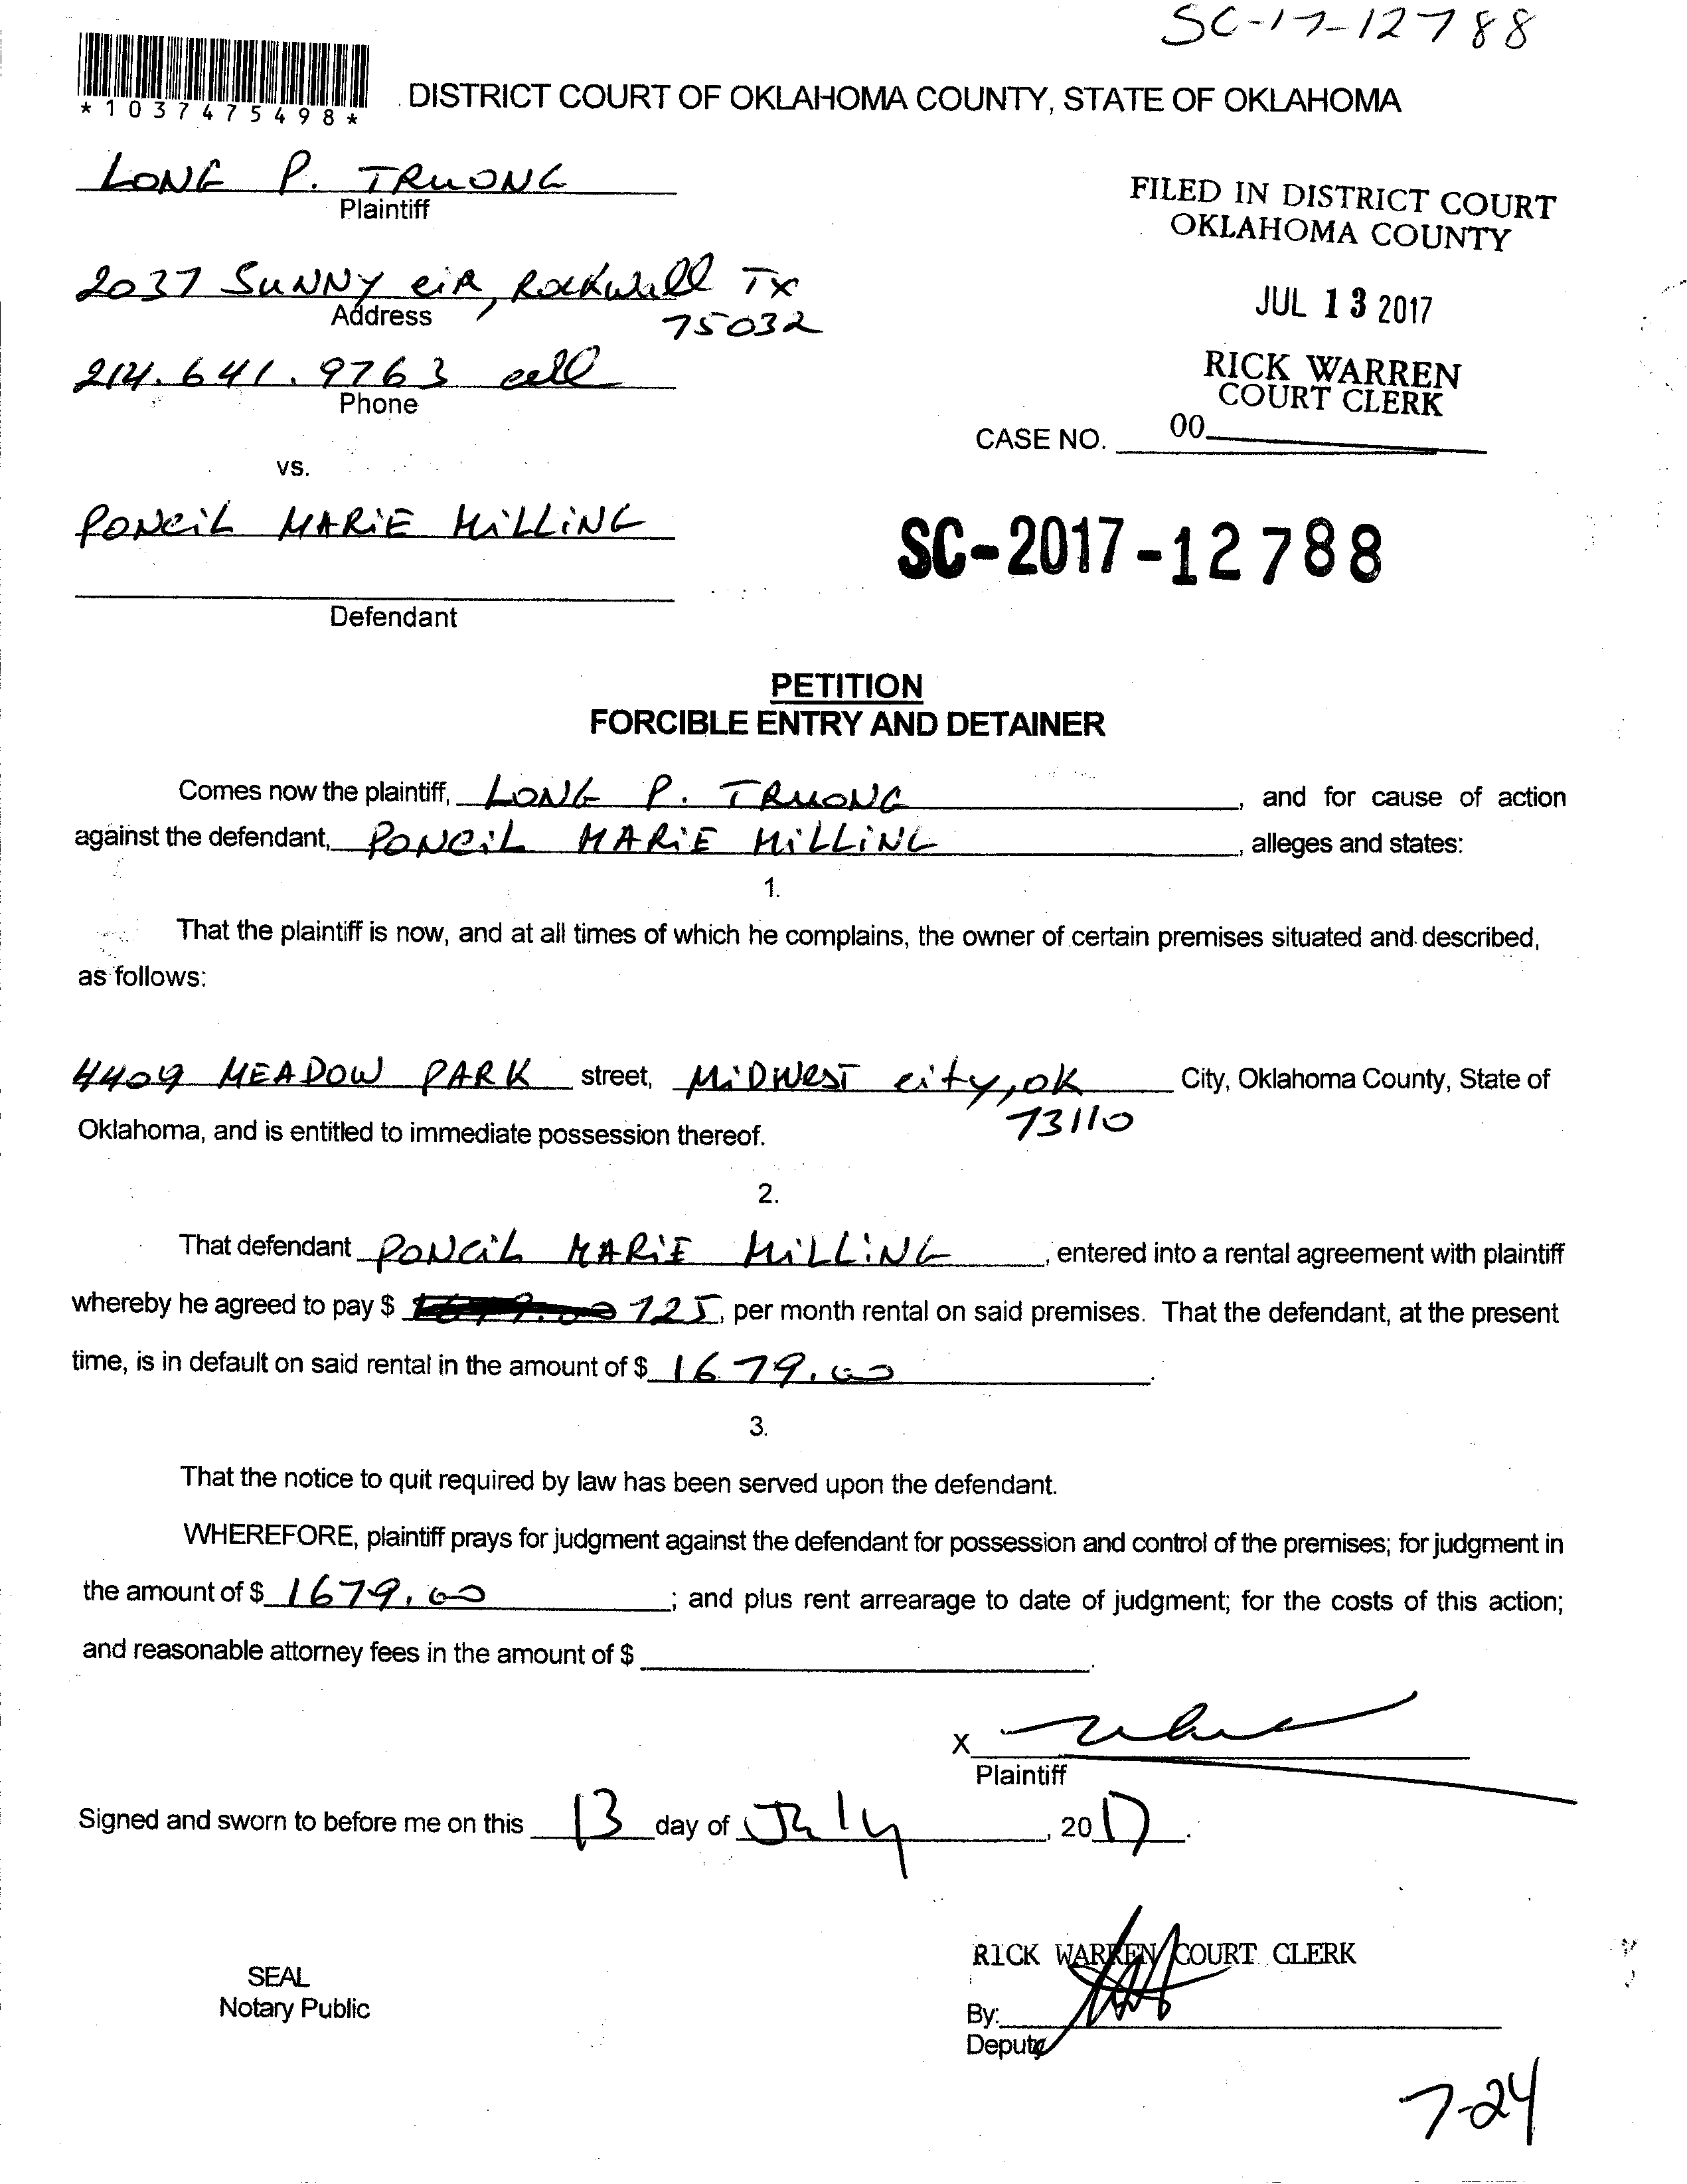 SC-17-12788
*1037475498*
DISTRICT COURT OF OKLAHOMA COUNTY, STATE OF OKLAHOMA
LONG P. TRUONG
Plaintiff
FILED IN DISTRICT COURT
OKLAHOMA COUNTY
2037 SUNNY CIR, Rockwall TX
Address
75032
JUL 13 2017
214.641.9763 cell
Phone
RICK WARREN
COURT CLERK
CASE NO. 00
vs.
PONCIL MARIE MILLING
SC-2017-12788
Defendant
PETITION
FORCIBLE ENTRY AND DETAINER
Comes now the plaintiff, LONG P. TRUONG, and for cause of action
against the defendant, PONCIL MARIE MILLING, alleges and states:
1.
That the plaintiff is now, and at all times of which he complains, the owner of certain premises situated and described,
as follows:
4409 MEADOW PARK street, MIDWEST city, OK City, Oklahoma County, State of
73110
Oklahoma, and is entitled to immediate possession thereof.
2.
That defendant PONCIL MARIE MILLING, entered into a rental agreement with plaintiff
whereby he agreed to pay $ 725, per month rental on said premises. That the defendant, at the present
time, is in default on said rental in the amount of $ 1679.00.
3.
That the notice to quit required by law has been served upon the defendant.
WHEREFORE, plaintiff prays for judgment against the defendant for possession and control of the premises; for judgment in
the amount of $ 1679.00; and plus rent arrearage to date of judgment; for the costs of this action;
and reasonable attorney fees in the amount of $.
X
Plaintiff
Signed and sworn to before me on this 13 day of July, 2017.
RICK WARREN COURT CLERK
SEAL
Notary Public
By:
Deputy
7-24